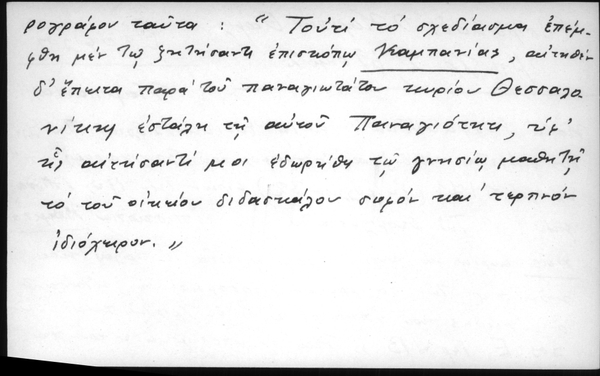 ρογράμον ταῦτα : “ Τουτί τό σχεδίασμα ἐπέμ-
φθη μέν τῷ ζητήσαντι ἐπισκόπῳ Καμπανίας, αἰτηθέν
δ' ἔπειτα παρά τοῦ παναγιωτάτου κυρίου Θεσσαλο
νίκης ἐστάλη τῇ αὐτοῦ Παναγιότητι, ὑφ'
ἧς αἰτήσαντί μοι ἐδωρήθη τῷ γνησίῳ μαθητῇ
τό τοῦ οἰκείου διδασκάλου σοφόν καί τερπνόν
ἰδιόχειρον. ”